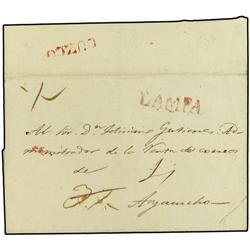 CUZCO
LAMPA
Al Sor. Dn. Feliciano Gutierrez, Ad-
ministrador de la Renta de correos
de
Ayacucho